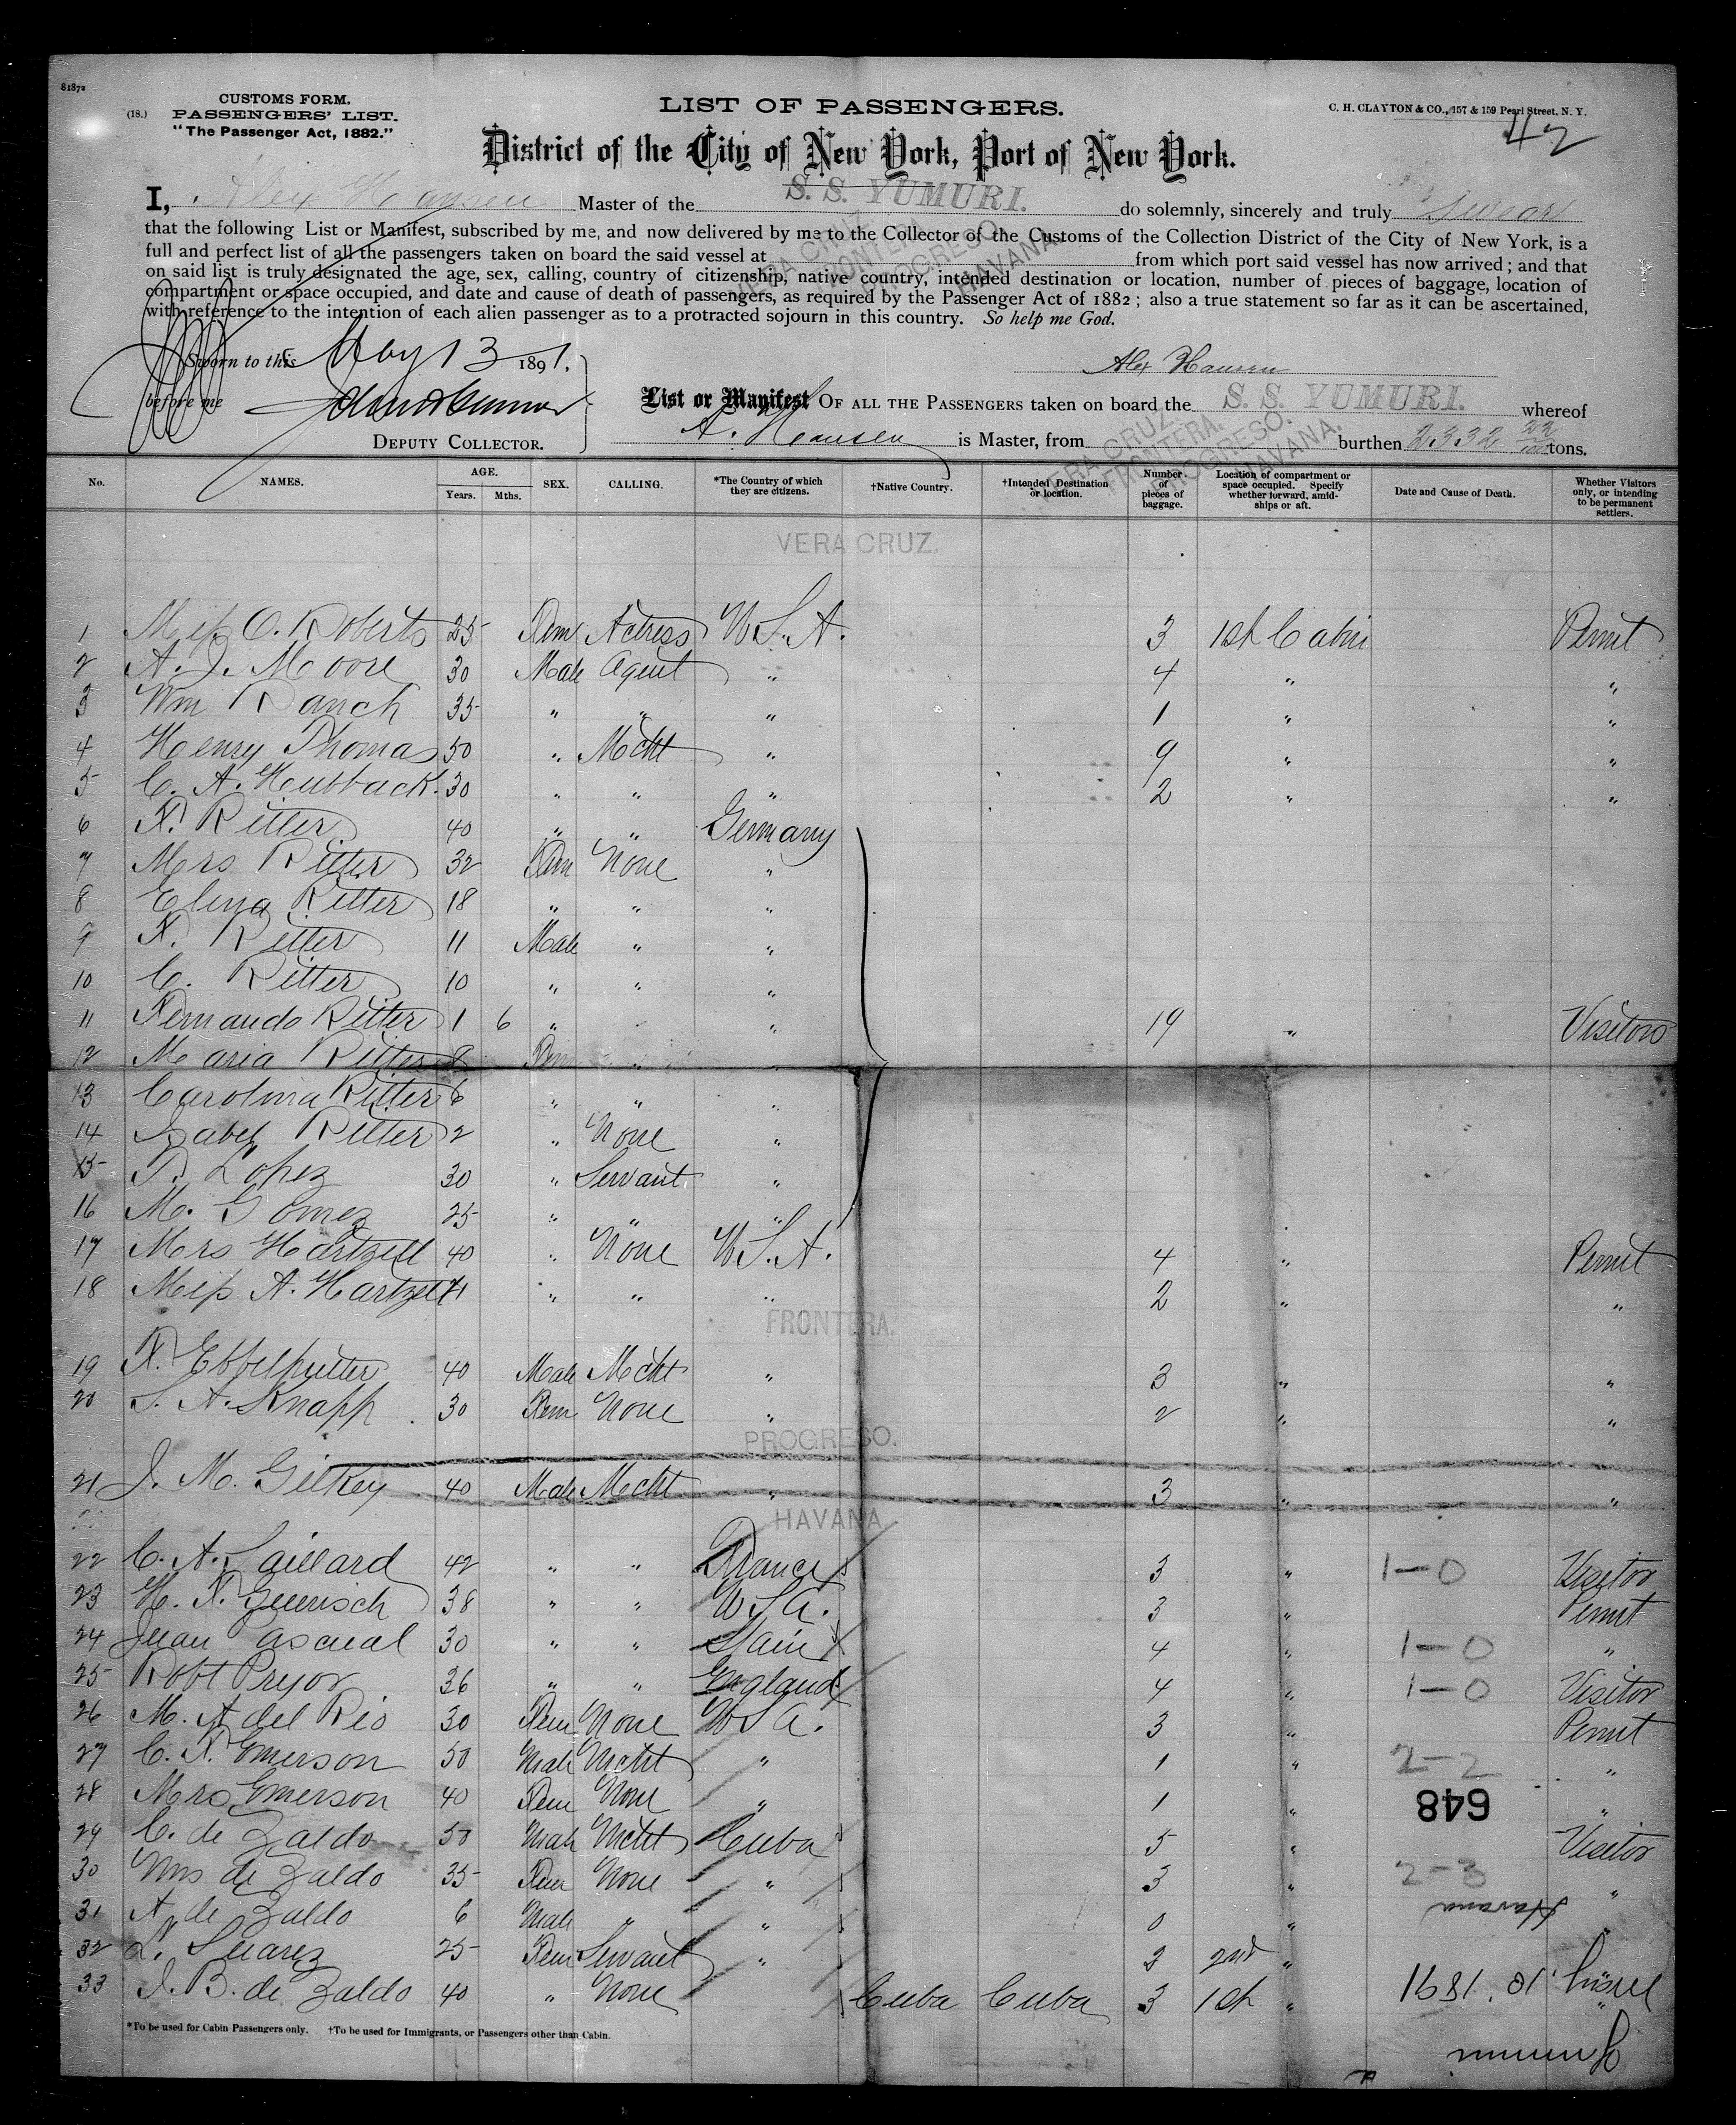 81872
CUSTOMS FORM.
(18.) PASSENGERS' LIST.
"The Passenger Act, 1882."
LIST OF PASSENGERS.
C. H. CLAYTON & CO., 157 & 159 Pearl Street, N. Y.
42
District of the City of New York, Port of New York.
I, Alex Hansen Master of the S. S. YUMURI. do solemnly, sincerely and truly Swear
that the following List or Manifest, subscribed by me, and now delivered by me to the Collector of the Customs of the Collection District of the City of New York, is a
full and perfect list of all the passengers taken on board the said vessel at VERA CRUZ. FRONTERA. PROGRESO. HAVANA. from which port said vessel has now arrived; and that
on said list is truly designated the age, sex, calling, country of citizenship, native country, intended destination or location, number of pieces of baggage, location of
compartment or space occupied, and date and cause of death of passengers, as required by the Passenger Act of 1882; also a true statement so far as it can be ascertained,
with reference to the intention of each alien passenger as to a protracted sojourn in this country. So help me God.
Sworn to this May 13 1891.
Alex Hansen
before me
DEPUTY COLLECTOR.
List or Manifest OF ALL THE PASSENGERS taken on board the S. S. YUMURI. whereof
A. Hansen is Master, from VERA CRUZ. FRONTERA. PROGRESO. HAVANA. burthen 2332 22/100 tons.
No. NAMES. AGE. Years. Mths. SEX. CALLING. *The Country of which they are citizens. †Native Country. †Intended Destination or location. Number of pieces of baggage. Location of compartment or space occupied. Specify whether forward, amidships or aft. Date and Cause of Death. Whether Visitors only, or intending to be permanent settlers.
VERA CRUZ.
1 Miss O. Roberts 25 Fem Actress U.S.A. 3 1st Cabin Permt
2 A. J. Moore 30 Male Agent " 4 " "
3 Wm Ranch 35 " " " 1 " "
4 Henry Thomas 50 " Mcht " 9 " "
5 C. A. Hubback 30 " " " 2 " "
6 F. Ritter 40 " " Germany
7 Mrs Ritter 32 Fem None "
8 Elena Ritter 18 " " "
9 F. Ritter 11 Male " "
10 C. Ritter 10 " " "
11 Fernando Ritter 1 6 " " 19 " Visitors
12 Maria Ritter 8 Fem " "
13 Carolina Ritter 6 " " "
14 Isabel Ritter 2 " None "
15 P. Lopez 30 " Servant "
16 M. Gomez 25 " " "
17 Mrs Hartzell 40 " None U.S.A. 4 " Permt
18 Miss A. Hartzell " " " 2 " "
FRONTERA.
19 F. 40 Male Mcht " 3 " "
20 S. A. Knapp 30 Fem None " 2 " "
PROGRESO.
21 J. M. Gilkey 40 Male Mcht " 3 " "
HAVANA.
22 C. A. 42 " " France 3 " 1-0 Visitor
23 H. F. 38 " " U S A. 3 " Permt
24 Juan Pascual 30 " " Spain 4 " 1-0 "
25 Robt Pryor 36 " " England 4 " 1-0 Visitor
26 M. A del Rio 30 Fem None U S A. 3 " Permt
27 C. F. Emerson 50 Male Mcht " 1 " 2-2 "
28 Mrs Emerson 40 Fem None " 1 " "
648
29 C. de Zaldo 50 Male Mcht Cuba 5 " Visitor
30 Mrs de Zaldo 35 Fem None " 3 " 2-3 "
31 A. de Zaldo 6 Male " " 0 " "
Havana
32 L. Suarez 25 Fem Servant " 2 2nd " "
33 J. B. de Zaldo 40 " None Cuba Cuba 3 1st " "
May 10' 1891
Yumuri
*To be used for Cabin Passengers only. †To be used for Immigrants, or Passengers other than Cabin.